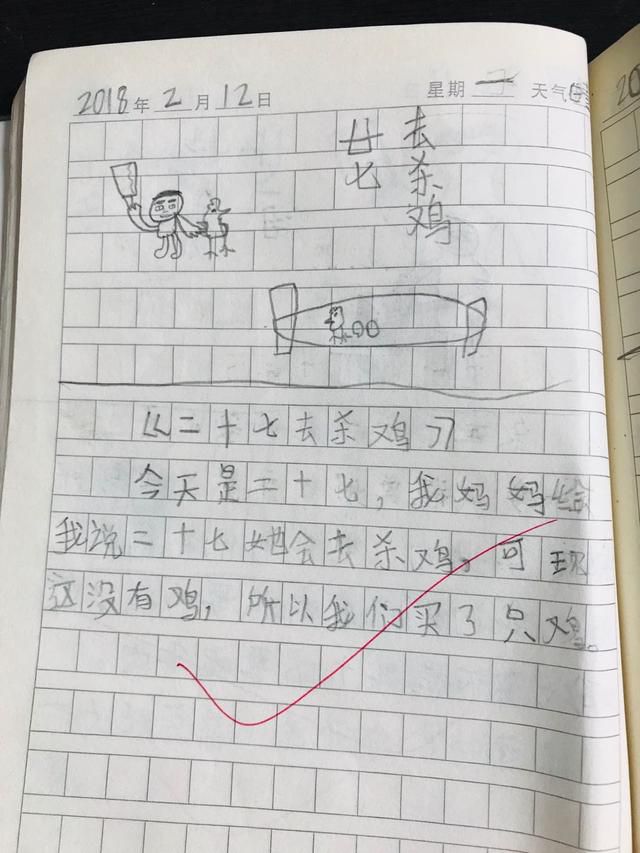 2018年2月12日 星期一 天气
廿七
去杀鸡
《二十七去杀鸡》
今天是二十七，我妈妈给
我说二十七她会去杀鸡。可现
这没有鸡，所以我们买了只鸡。
20